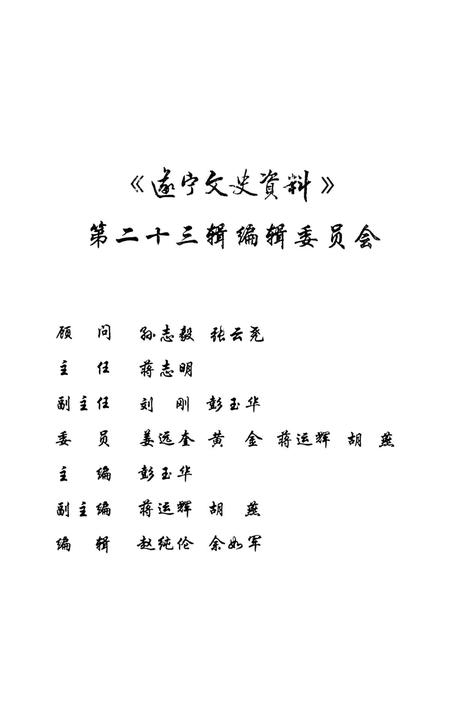 《遂宁文史資料》
第二十三辑编辑委员会
顾 问 孙志毅 张云尧
主 任 蒋志明
副主任 刘 刚 彭玉华
委 员 姜远奎 黄 金 蒋运辉 胡 燕
主 编 彭玉华
副主编 蒋运辉 胡 燕
编 辑 赵纯伦 余如军